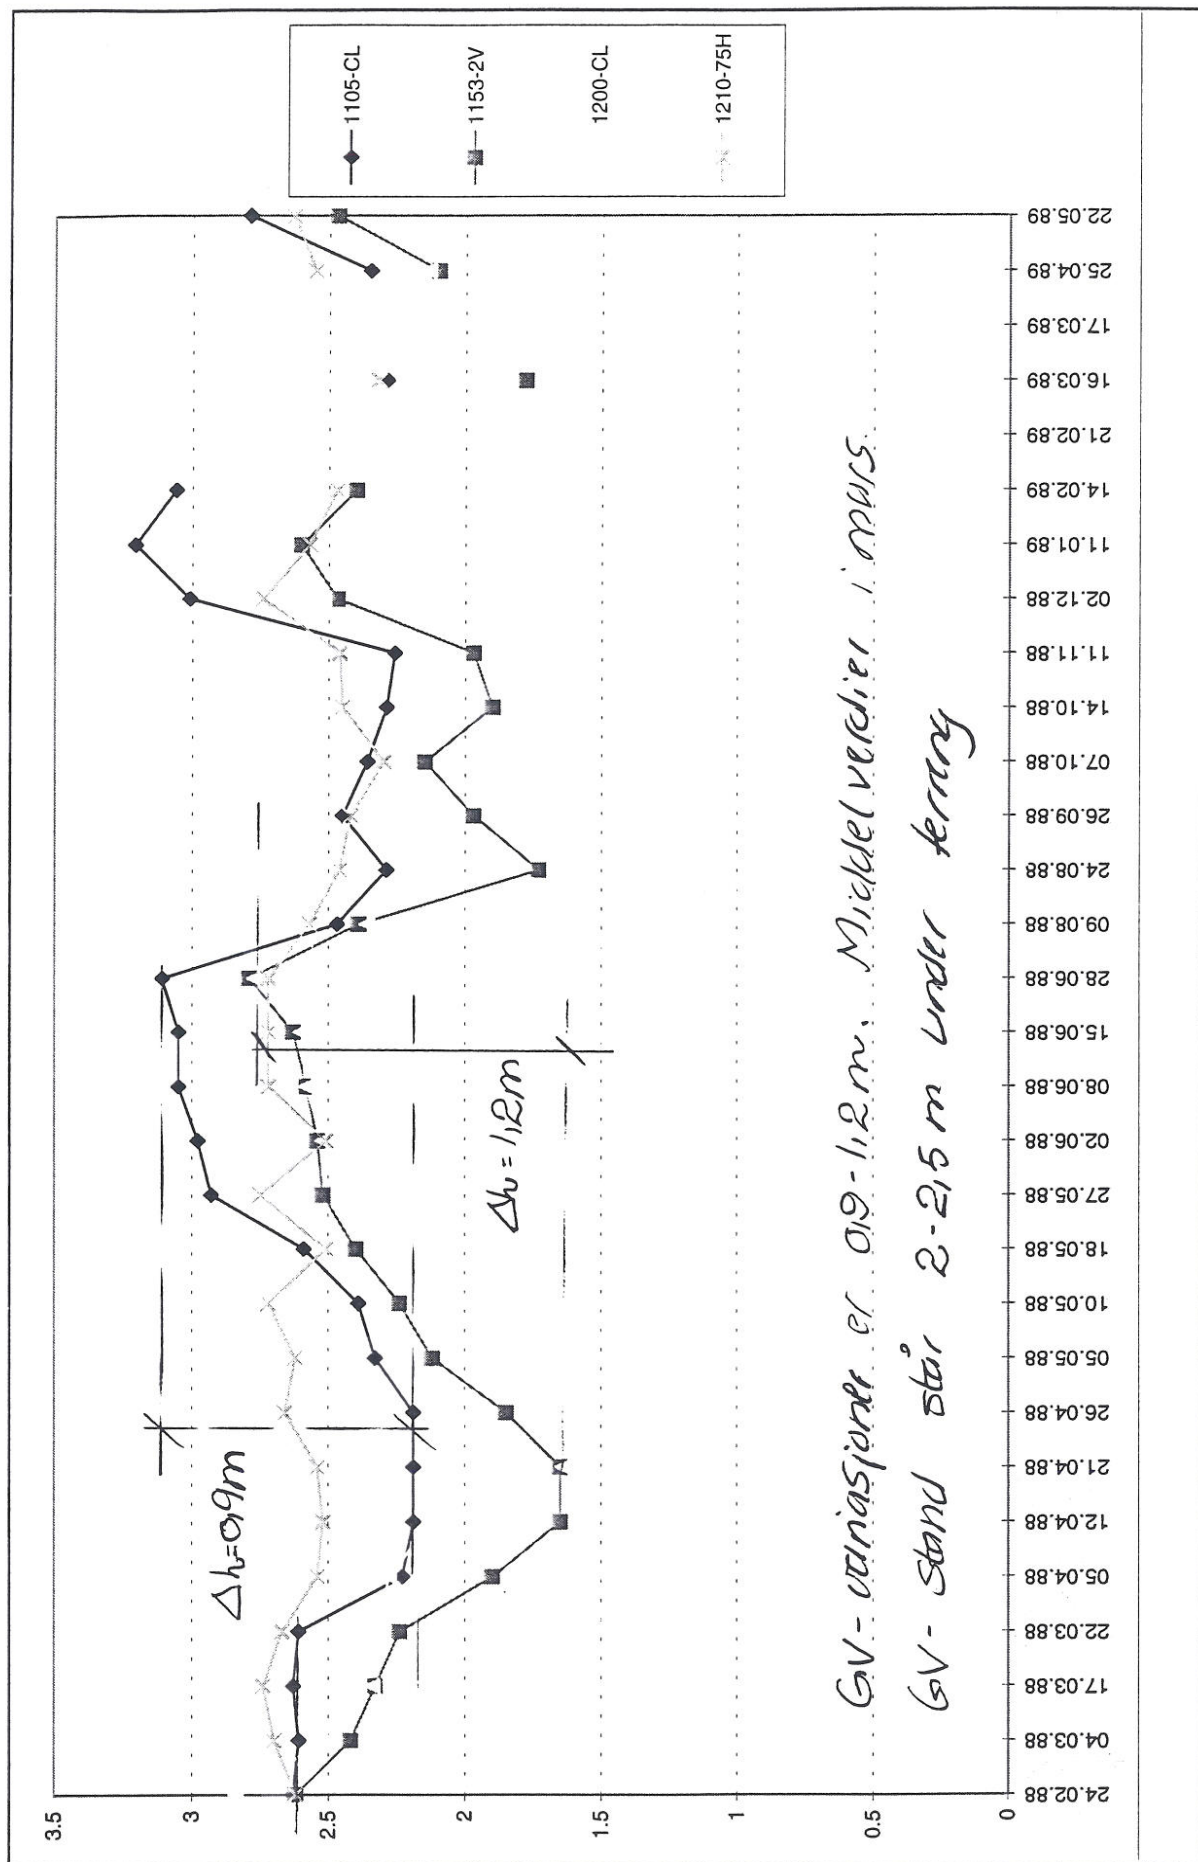 3.5
3
2.5
2
1.5
1
0.5
0
24.02.88
04.03.88
17.03.88
22.03.88
05.04.88
12.04.88
21.04.88
26.04.88
05.05.88
10.05.88
18.05.88
27.05.88
02.06.88
08.06.88
15.06.88
28.06.88
09.08.88
24.08.88
26.09.88
07.10.88
14.10.88
11.11.88
02.12.88
11.01.89
14.02.89
21.02.89
16.03.89
17.03.89
25.04.89
22.05.89
1105-CL
1153-2V
1200-CL
1210-75H
Δh=0,9m
Δh=1,2m
GV-variasjoner er 0,9-1,2m. Middelverdier i mars.
GV-stand står 2-2,5 m under terreng